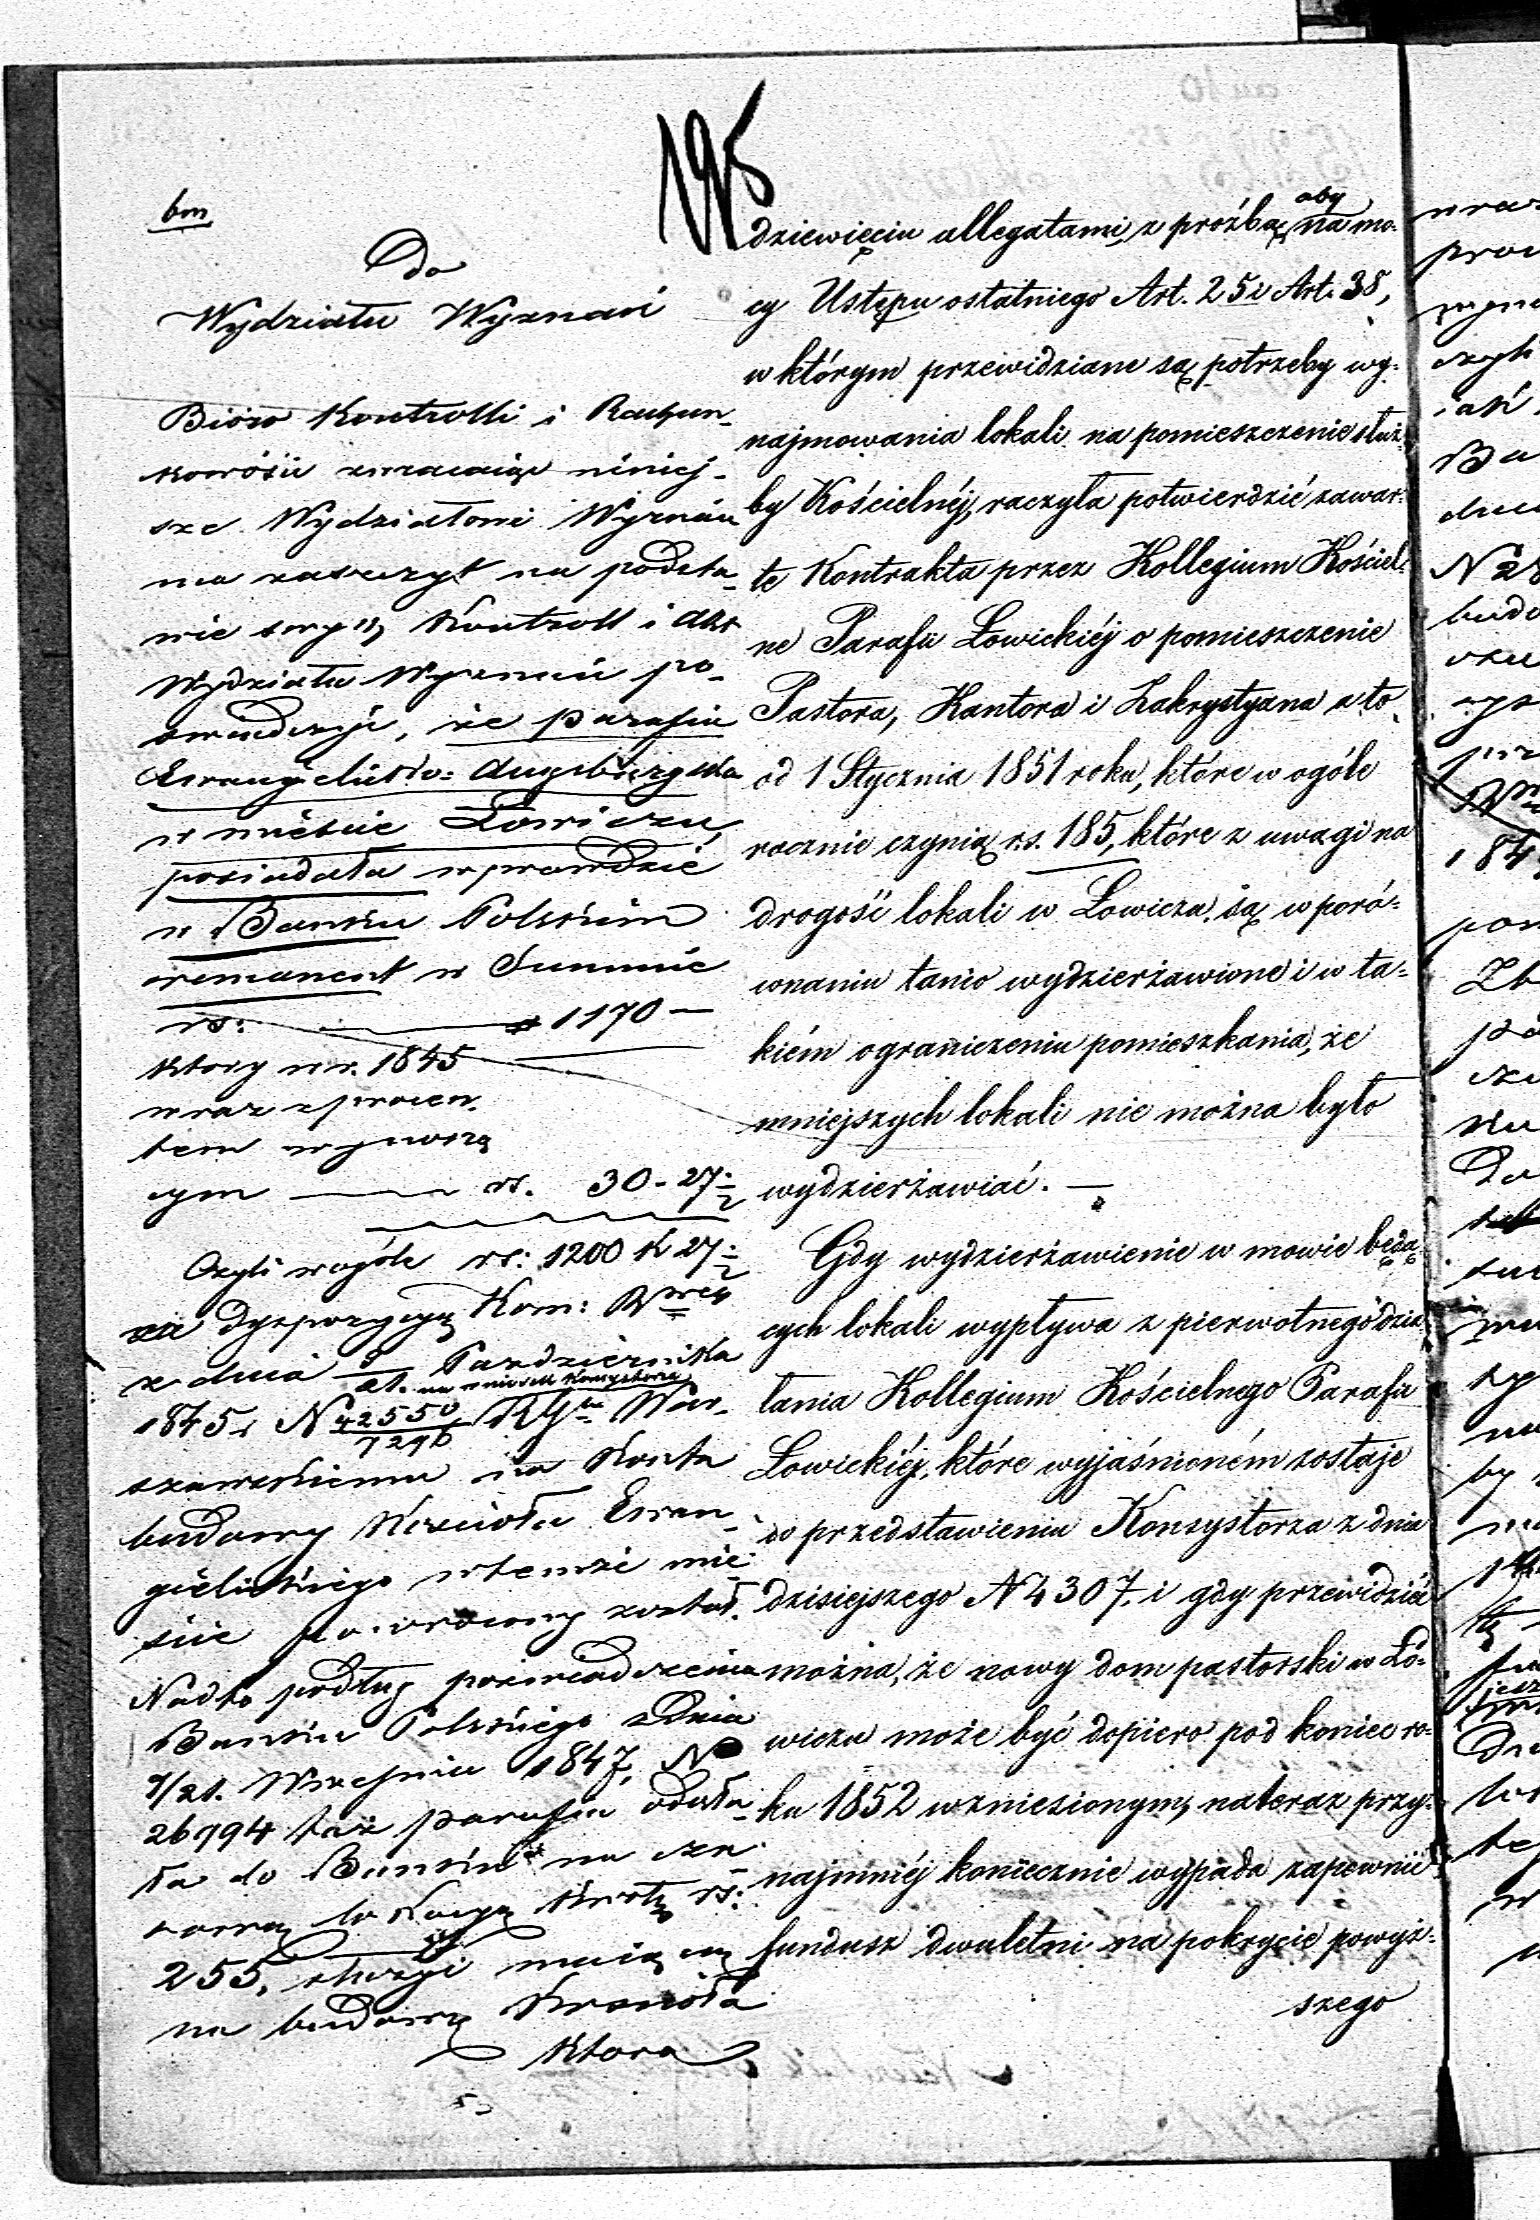 195
bm
Do
Wydziału Wyznań
Bióro Kontrolli i Rachun-
kowości zwracając niniej-
sze Wydziałowi Wyznań
ma zaszczyt na podsta-
wie swych Kontroll i akt
Wydziału Wyznań po-
świadczyć, że parafia
Ewangielicko-Augsburgska
w mieście Łowiczu,
posiadała wprawdzie
w Banku Polskim
remanent w Summie
rs: 1170 —
który w r. 1845
wraz z procen-
tem wynoszą
cym rs. 30 - 27 1/2
Czyli wogóle rs: 1200 k 27 1/2
dyspozycyą Kom: Rz
z dnia Października
na wniosek Konsystorza
1845 r N 42550/7296 War-
szawskiemu na Konta
budowy Kościoła Ewan-
gielickiego w temże mie-
ście został.
Nadto podług poświadczenia
Banku Polskiego z dnia
9/21. Września 1847, N
26794 taż parafia odesła-
ła do Banku na
lokacyą kwotę rs:
255, służyć mającą
na budowę Kościoła
która
dziewięciu allegatami, z prośbą, aby na mo-
cy Ustępu ostatniego Art. 25 i Art. 38,
w którym przewidziane są potrzeby wy-
najmowania lokali na pomieszczenie służ-
by Kościelnéj, raczyła potwierdzić zawar-
te Kontrakta przez Kollegium Kościel-
ne Parafii Łowickiéj o pomieszczenie
Pastora, Kantora i Zakrystyana a to
od 1 Stycznia 1851 roku, które w ogóle
rocznie czynią rs. 185, które z uwagi na
drogość lokali w Łowiczu, są w poró-
wnaniu tanio wydzierżawione i w ta-
kiém ograniczeniu pomieszkania, że
mniejszych lokali nie można było
wydzierżawiać. —
Gdy wydzierżawienie w mowie będą-
cych lokali wypływa z pierwotnego dzia-
łania Kollegium Kościelnego Parafii
Łowickiéj, które wyjaśnioném zostaje
do przedstawieniu Konsystorza z dnia
dzisiejszego N 4307. i gdy przewidzieć
można, że nowy dom pastorski w Ło-
wiczu może być dopiero pod koniec ro-
ku 1852 wzniesionym, nateraz przy-
najmniéj koniecznie wypada zapewnić
fundusz dwuletni na pokrycie powyż-
szego